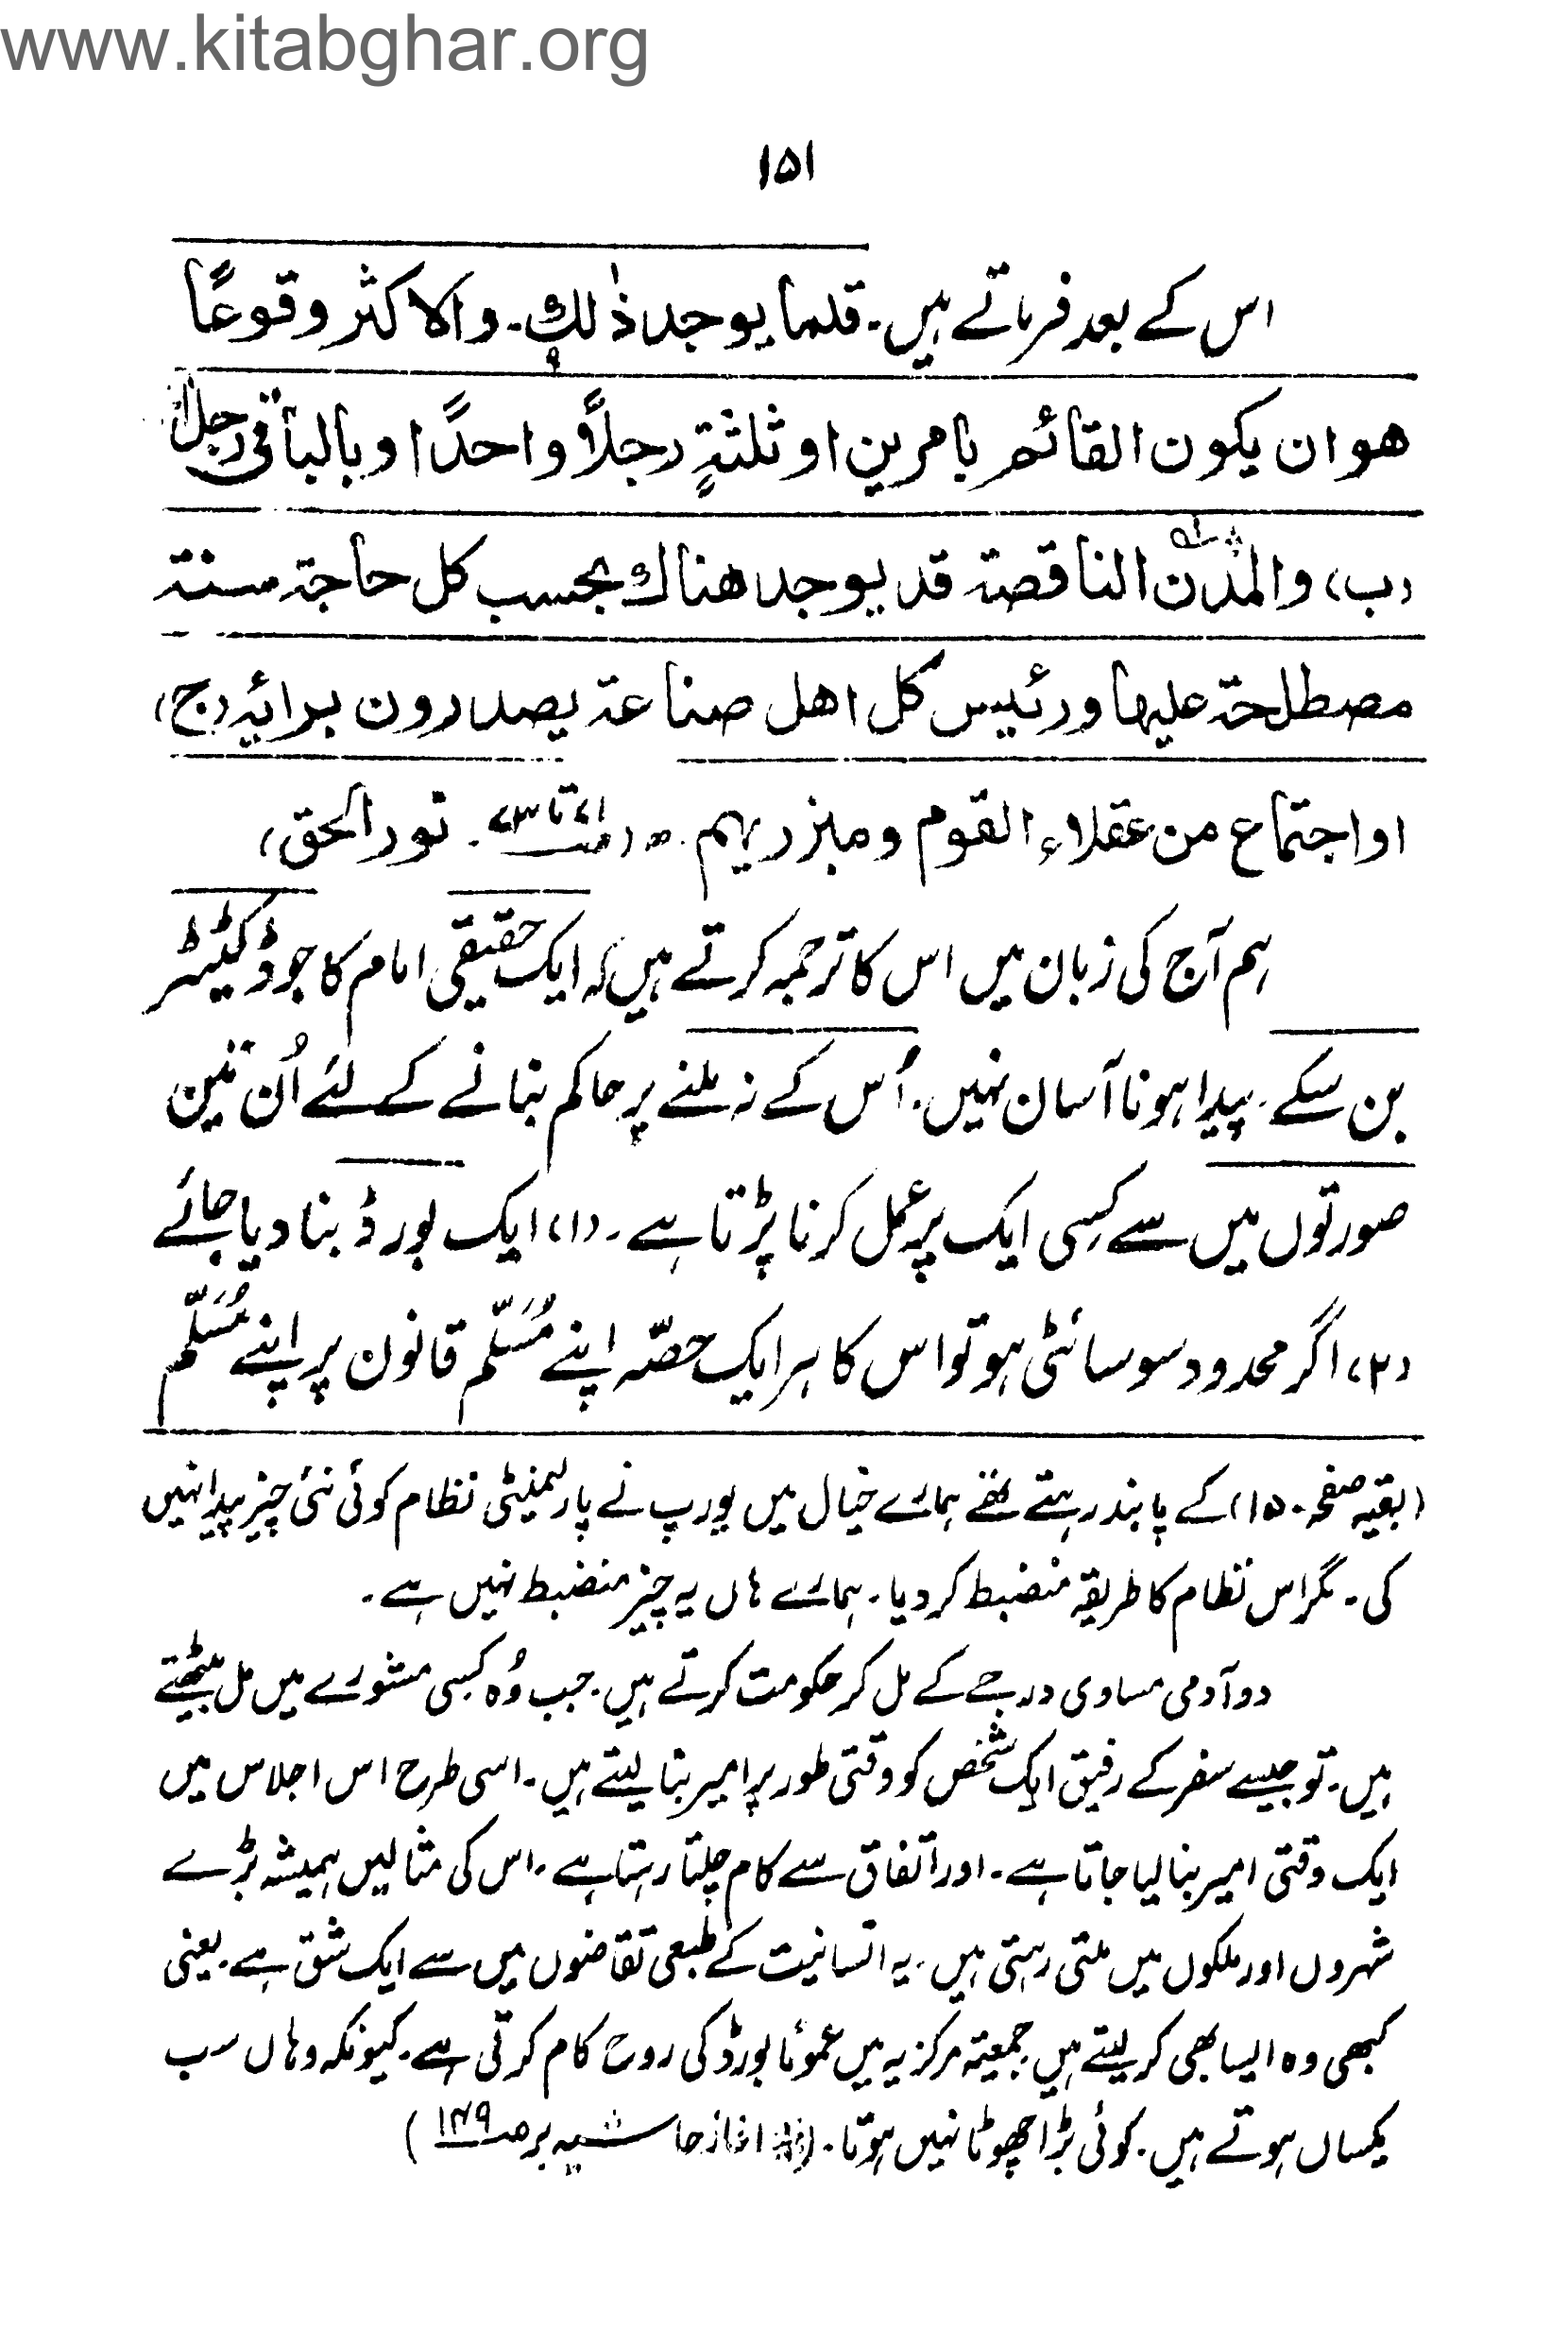 www.kitabghar.org
۱۵۱
اس کے بعد فرماتے ہیں۔ قلما یوجد ذٰلك۔ والاکثر وقوعًا
هو ان یکون القائم بامرین او ثلثةٍ رجلًا واحدًا وبالباقی رجل
(ب) والمدن الناقصة قد یوجد هناك بحسب کل حاجة سنة
مصطلحة علیها ورئیس کل اهل صناعة یصدرون برائہ (ج)
او اجتماع من عقلاء القوم ومبزریهم۔ ھ (ص۷۱ تا ۷۳۔ نور الحق)
ہم آج کی زبان میں اس کا ترجمہ کرتے ہیں کہ ایک حقیقی امام کا جو ڈکٹیٹر
بن سکے۔ پیدا ہونا آسان نہیں۔ اُس کے نہ ملنے پر حاکم بنانے کے لئے اُن تین
صورتوں میں سے کِسی ایک پر عمل کرنا پڑتا ہے۔ (۱) ایک بورڈ بنا دیا جائے
(۲) اگر محدود سوسائٹی ہو تو اس کا ہر ایک حصّہ اپنے مُسَلّم قانون پر اپنے مُسَلّم
(بقیہ صفحہ ۱۵۰) کے پابند رہتے تھے ہمارے خیال میں یورپ نے پارلیمنٹی نظام کوئی نئی چیز پیدا نہیں
کی۔ مگر اس نظام کا طریقہ منضبط کر دیا۔ ہمارے ہاں یہ چیز منضبط نہیں ہے۔
دو آدمی مساوی درجے کے مل کر حکومت کرتے ہیں۔ جب وُہ کسی مشورے میں مل بیٹھتے
ہیں۔ تو جیسے سفر کے رفیق ایک شخص کو وقتی طور پر امیر بنا لیتے ہیں۔ اسی طرح اس اجلاس میں
ایک وقتی امیر بنا لیا جاتا ہے۔ اور اتفاق سے کام چلتا رہتا ہے۔ اس کی مثالیں ہمیشہ بڑے
شہروں اور ملکوں میں ملتی رہتی ہیں۔ یہ انسانیت کے طبعی تقاضوں میں سے ایک شق ہے۔ یعنی
کبھی وہ ایسا بھی کر لیتے ہیں جمعیتہ مرکزیہ میں عموًا بورڈ کی روح کام کرتی ہے۔ کیونکہ وہاں سب
یکساں ہوتے ہیں۔ کوئی بڑا چھوٹا نہیں ہوتا۔ ( آغاز حاشیہ بر ص۱۴۹)